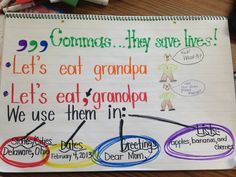 ,,, Commas...they save lives!
Let's eat grandpa
Let's eat, grandpa
We use them in:
Delaware, Ohio
Dates
February 4, 2013
Greetings
Dear Mom,
Lists
apples, bananas, and
cherries